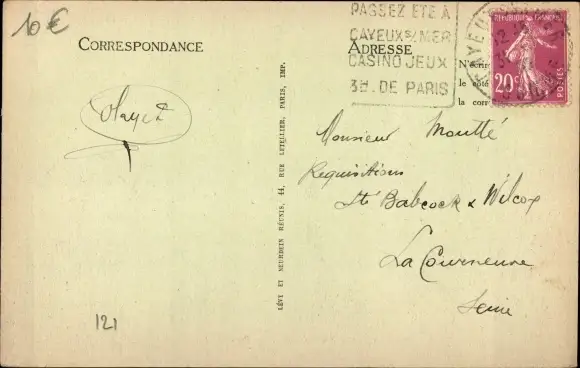 10 €
PASSEZ ETÉ À
CAYEUX S/ MER
CASINO JEUX
3H. DE PARIS
REPUBLIQUE FRANÇAISE
20c
POSTES
CORRESPONDANCE
ADRESSE
N'écrire
le côté
la corr
LÉVY ET NEURDEIN RÉUNIS, 44, RUE LETELLIER, PARIS, IMP.
Monsieur Moutté
Requisitions
Sté Babcock & Wilcox
La Courneuve
Seine
121